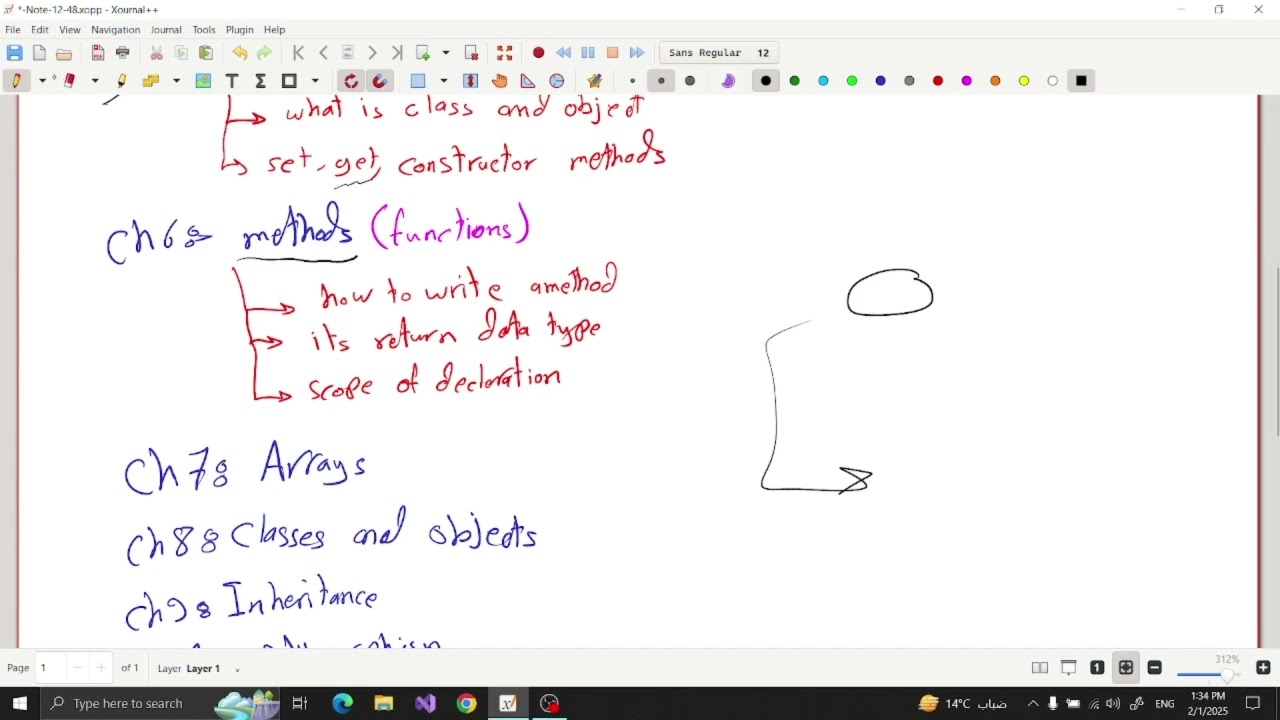 *-Note-12-48.xopp - Xournal++
File Edit View Navigation Journal Tools Plugin Help
Sans Regular 12
what is class and object
set, get, constructor methods
Ch6: methods (functions)
how to write a method
its return data type
scope of decleration
Ch7: Arrays
Ch8: Classes and objects
Ch9: Inheritance
Page 1 of 1 Layer Layer 1 312%
Type here to search 14°C ضباب ENG 1:34 PM
2/1/2025